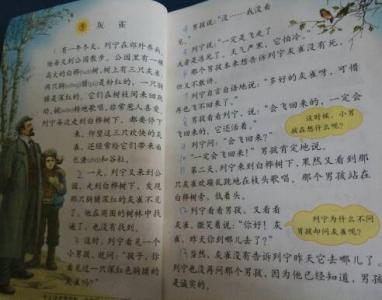 灰雀
有一年冬天，列宁在郊外养病。
他每天到公园散步。公园里有一棵
高大的白桦(huà)树，树上有三只灰雀：
两只胸脯(pú)是粉红的，一只胸
脯是深红的。它们在树枝间来回跳
动，婉(wǎn)转地歌唱，非常惹人喜爱。
列宁每次走到白桦树下，都要停下
来，仰望这三只欢快的灰
雀，还经常给它们带来面
包渣和谷粒。
一天，列宁又来到公
园，走到白桦树下，发现
那只胸脯深红的灰雀不见
了。他在周围的树林中找
遍了，也没有找到。
3 这时，列宁看见一个
小男孩，就问：“孩子，你
看见过一只深红色胸脯的
灰雀吗？”
男孩说：“没——我没看
见。”
列宁说：“一定是飞走了
或者是冻死了。天气严寒，它怕冷。”
那个男孩本来想告诉列宁灰雀没有死，
但又不敢讲。
列宁自言自语地说：“多好的灰雀呀，可惜
再也飞不回来了。”
男孩看看列宁，说：“会飞回来的，一定会
飞回来的。它还活着。”
列宁问：“会飞回来？”
“一定会飞回来！”男孩肯定地说。
这时候，小男
孩在想什么呢？
第二天，列宁来到白桦树下，果然又看到那
只灰雀欢蹦乱跳地在枝头歌唱。那个男孩站在
白桦树旁，低着头。
列宁看看男孩，又看看
灰雀，微笑着说：“你好！灰
雀，昨天你到哪儿去了？”
列宁为什么不问
男孩却问灰雀呢？
当然，灰雀没有告诉列宁昨天它去哪儿了。
列宁也没再问那个男孩，因为他已经知道，男孩
是诚实的。